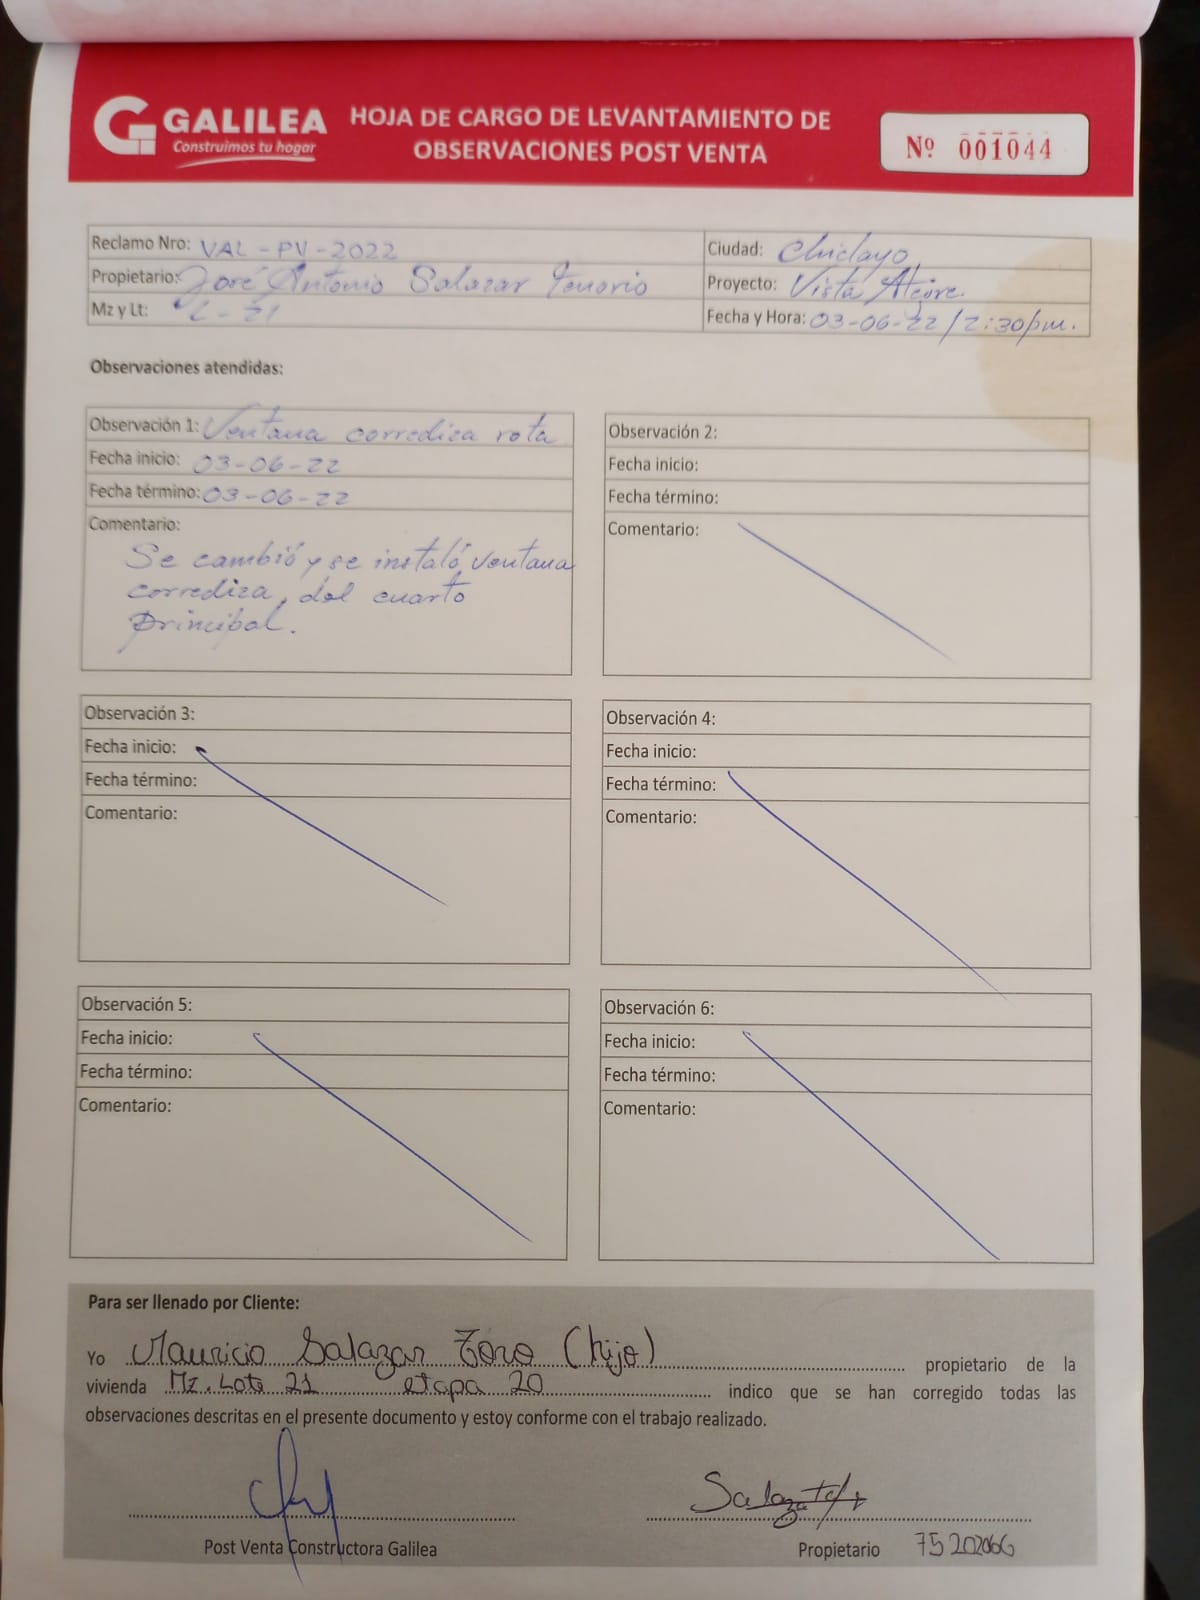 GALILEA
Construimos tu hogar
HOJA DE CARGO DE LEVANTAMIENTO DE
OBSERVACIONES POST VENTA
Nº 001044
Reclamo Nro: VAL-PV-2022
Ciudad: Chiclayo
Propietario: José Antonio Salazar Tenorio
Proyecto: Vista Alegre.
Mz y Lt: L-21
Fecha y Hora: 03-06-22/2:30pm.
Observaciones atendidas:
Observación 1: Ventana corrediza rota
Fecha inicio: 03-06-22
Fecha término: 03-06-22
Comentario:
Se cambió y se instaló ventana
corrediza, del cuarto
principal.
Observación 2:
Fecha inicio:
Fecha término:
Comentario:
Observación 3:
Fecha inicio:
Fecha término:
Comentario:
Observación 4:
Fecha inicio:
Fecha término:
Comentario:
Observación 5:
Fecha inicio:
Fecha término:
Comentario:
Observación 6:
Fecha inicio:
Fecha término:
Comentario:
Para ser llenado por Cliente:
Yo Mauricio Salazar Toro (hijo) propietario de la
vivienda Mz. Lote 21 etapa 20 indico que se han corregido todas las
observaciones descritas en el presente documento y estoy conforme con el trabajo realizado.
Post Venta Constructora Galilea
Propietario 75202066